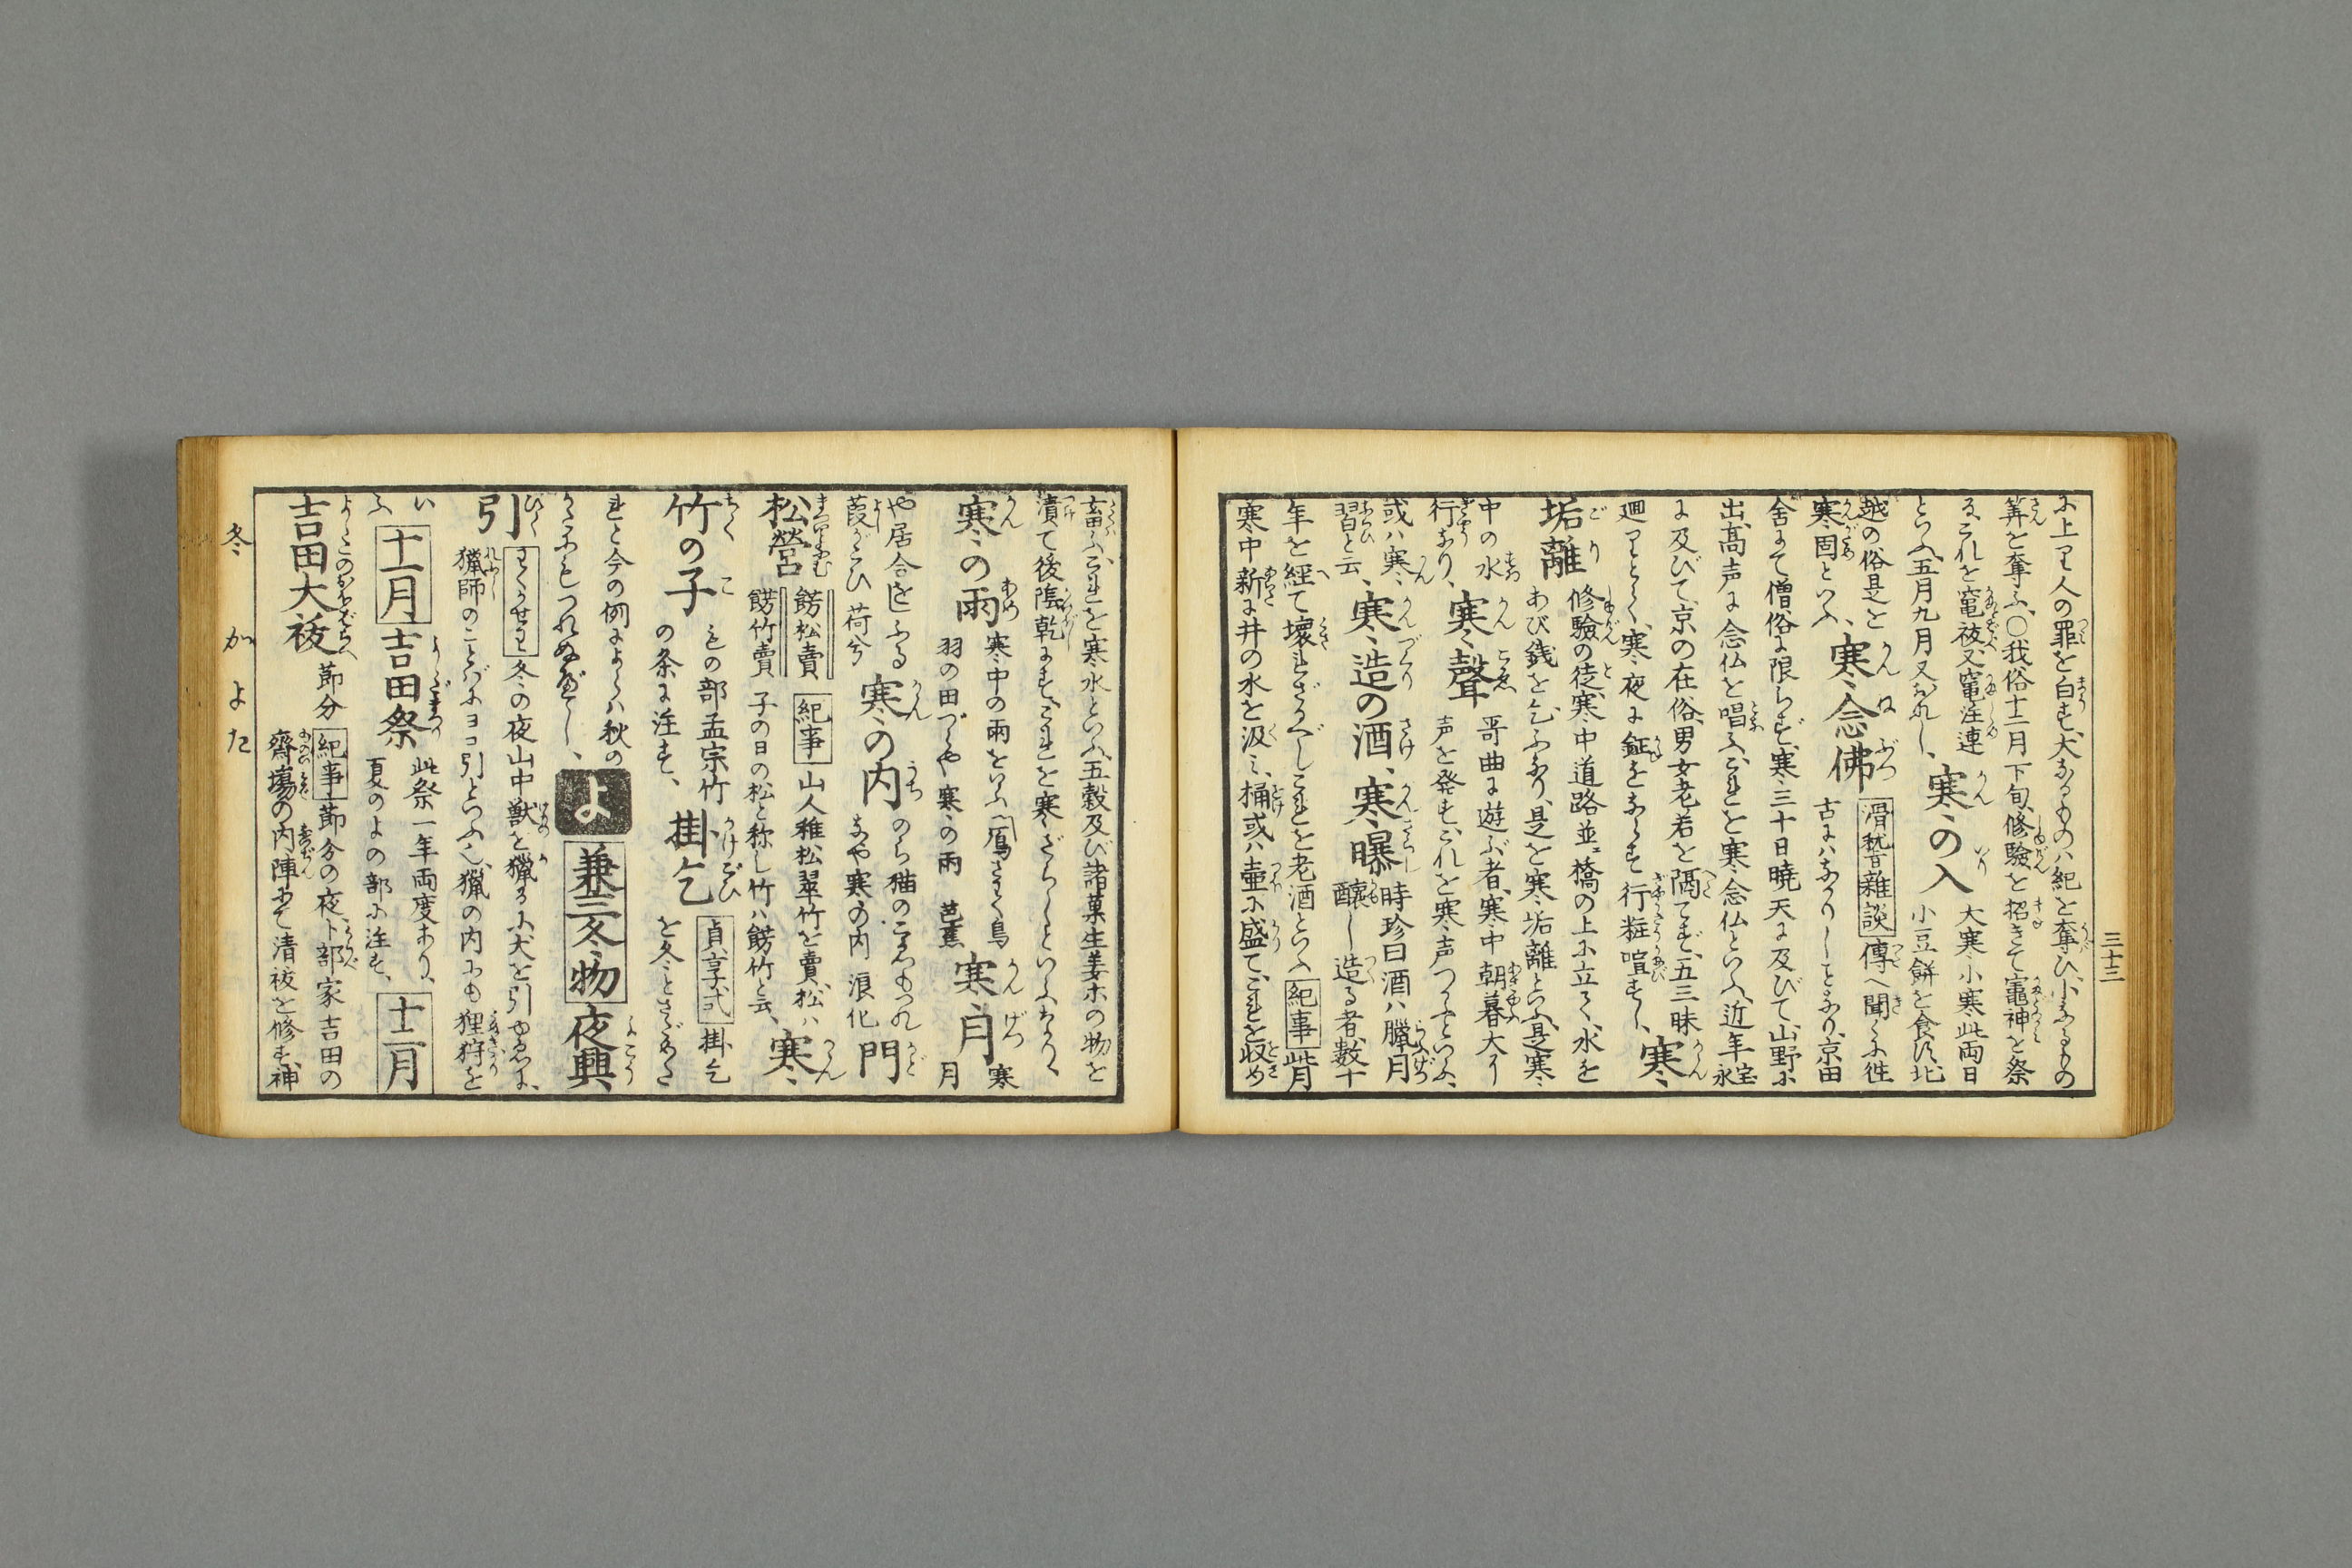 三十三
に上りて人の罪を白す、大なるものハ紀を奪ひ、小なるもの
筭を奪ふ、〇我俗十二月下旬、修驗を招きて竈神を祭
る、これを竃祓、又竃注連
といふ、五月九月又おなし、寒の入 大寒小寒此両日
小豆餅を食ふ、北
越の俗是を
寒固といふ、寒念佛 滑稽雜談 傳へ聞くに徃
古にハなかりしことなり、京田
舎にて僧俗に限らず、寒三十日暁天に及びて、山野に
出、高声に念仏を唱ふ、これを寒念仏といふ、近年宝永
に及びて、京の在俗、男女老若を隔てず、五三昧
廻りとて、寒夜に鉦をならす行粧喧すし、寒
垢離 修驗の徒、寒中道路並ニ橋の上に立て、水を
あび銭を乞ふなり、是を寒垢離といふ、是寒
中の水
行なり、寒聲 哥曲に遊ぶ者、寒中朝暮大に
声を発す、これを寒声つかふといふ、
或ハ寒
習と云、寒造の酒、寒曝 時珍曰酒ハ臘月
醸し造る者、数十
年を経て壊れざるべし、これを老酒といふ 紀事 此月
寒中新に井の水を汲ミ、桶或ハ壺に盛て、これを収め
畜ふ、これを寒水といふ、五穀及び諸菓生姜ホの物を
漬て後陰乾にす、これを寒ざらしといふなり、
寒の雨 寒中の雨をいふ 鳫さわく鳥
羽の田づらや寒の雨 芭蕉 寒月 寒
月
や居合をしふる
葭がこひ 荷兮 寒の内 のら猫のこゑもつれ
なや寒の内 浪化 門
松營 餝松賣
餝竹賣 紀事 山人稚松翠竹を賣、松ハ
子の日の松と称し竹ハ餝竹と云、寒
竹の子 もの部孟宗竹
の条に注す、掛乞 貞享式 掛乞
を冬とさだめた
れど今の例によらハ秋の
かたにもつれぬべし、よ 兼三冬物 夜興
引 わくかせわ 冬の夜山中獣を獵るに犬を引ゆゑに、
獵師のことばにヨコ引といふ也、獵の内にも狸狩を
い
ふ 十一月 吉田祭 此祭一年両度あり、
夏のよの部に注す、十二月
吉田大祓 節分 紀事 節分の夜、卜部家吉田の
齋場の内陣にて清祓を修す、神
冬 か よた